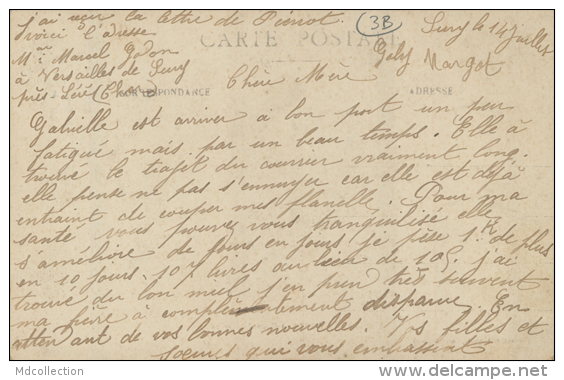 j'ai reçu la lettre de Pierrot.
voici l'adresse
Mme Marcel Godon
à Versailles de Sury
près-Léré (Cher)
3B
Sury le 14 Juillet
CARTE POSTALE
Margot
CORRESPONDANCE
ADRESSE
Chère Mère
Gabrielle est arriver à bon port un peu
fatigué mais par un beau temps. Elle à
trouvé le trajet du courrier vraiment long.
elle pense ne pas s'ennuyer car elle est déjà
entraint de couper mes flanelle. Pour ma
santé vous pouvez vous tranquilisé elle
s'améliore de jours en jours je pèse 1k de plus
en 10 jours. 107 livres au lieu de 105. j'ai
trouvé du bon miel j'en pren très souvent
ma fièvre à complètement disparue. En
attendant de vos bonnes nouvelles. Vs filles et
sœurs qui vous embrassent
Mdcollection
www.delcampe.net